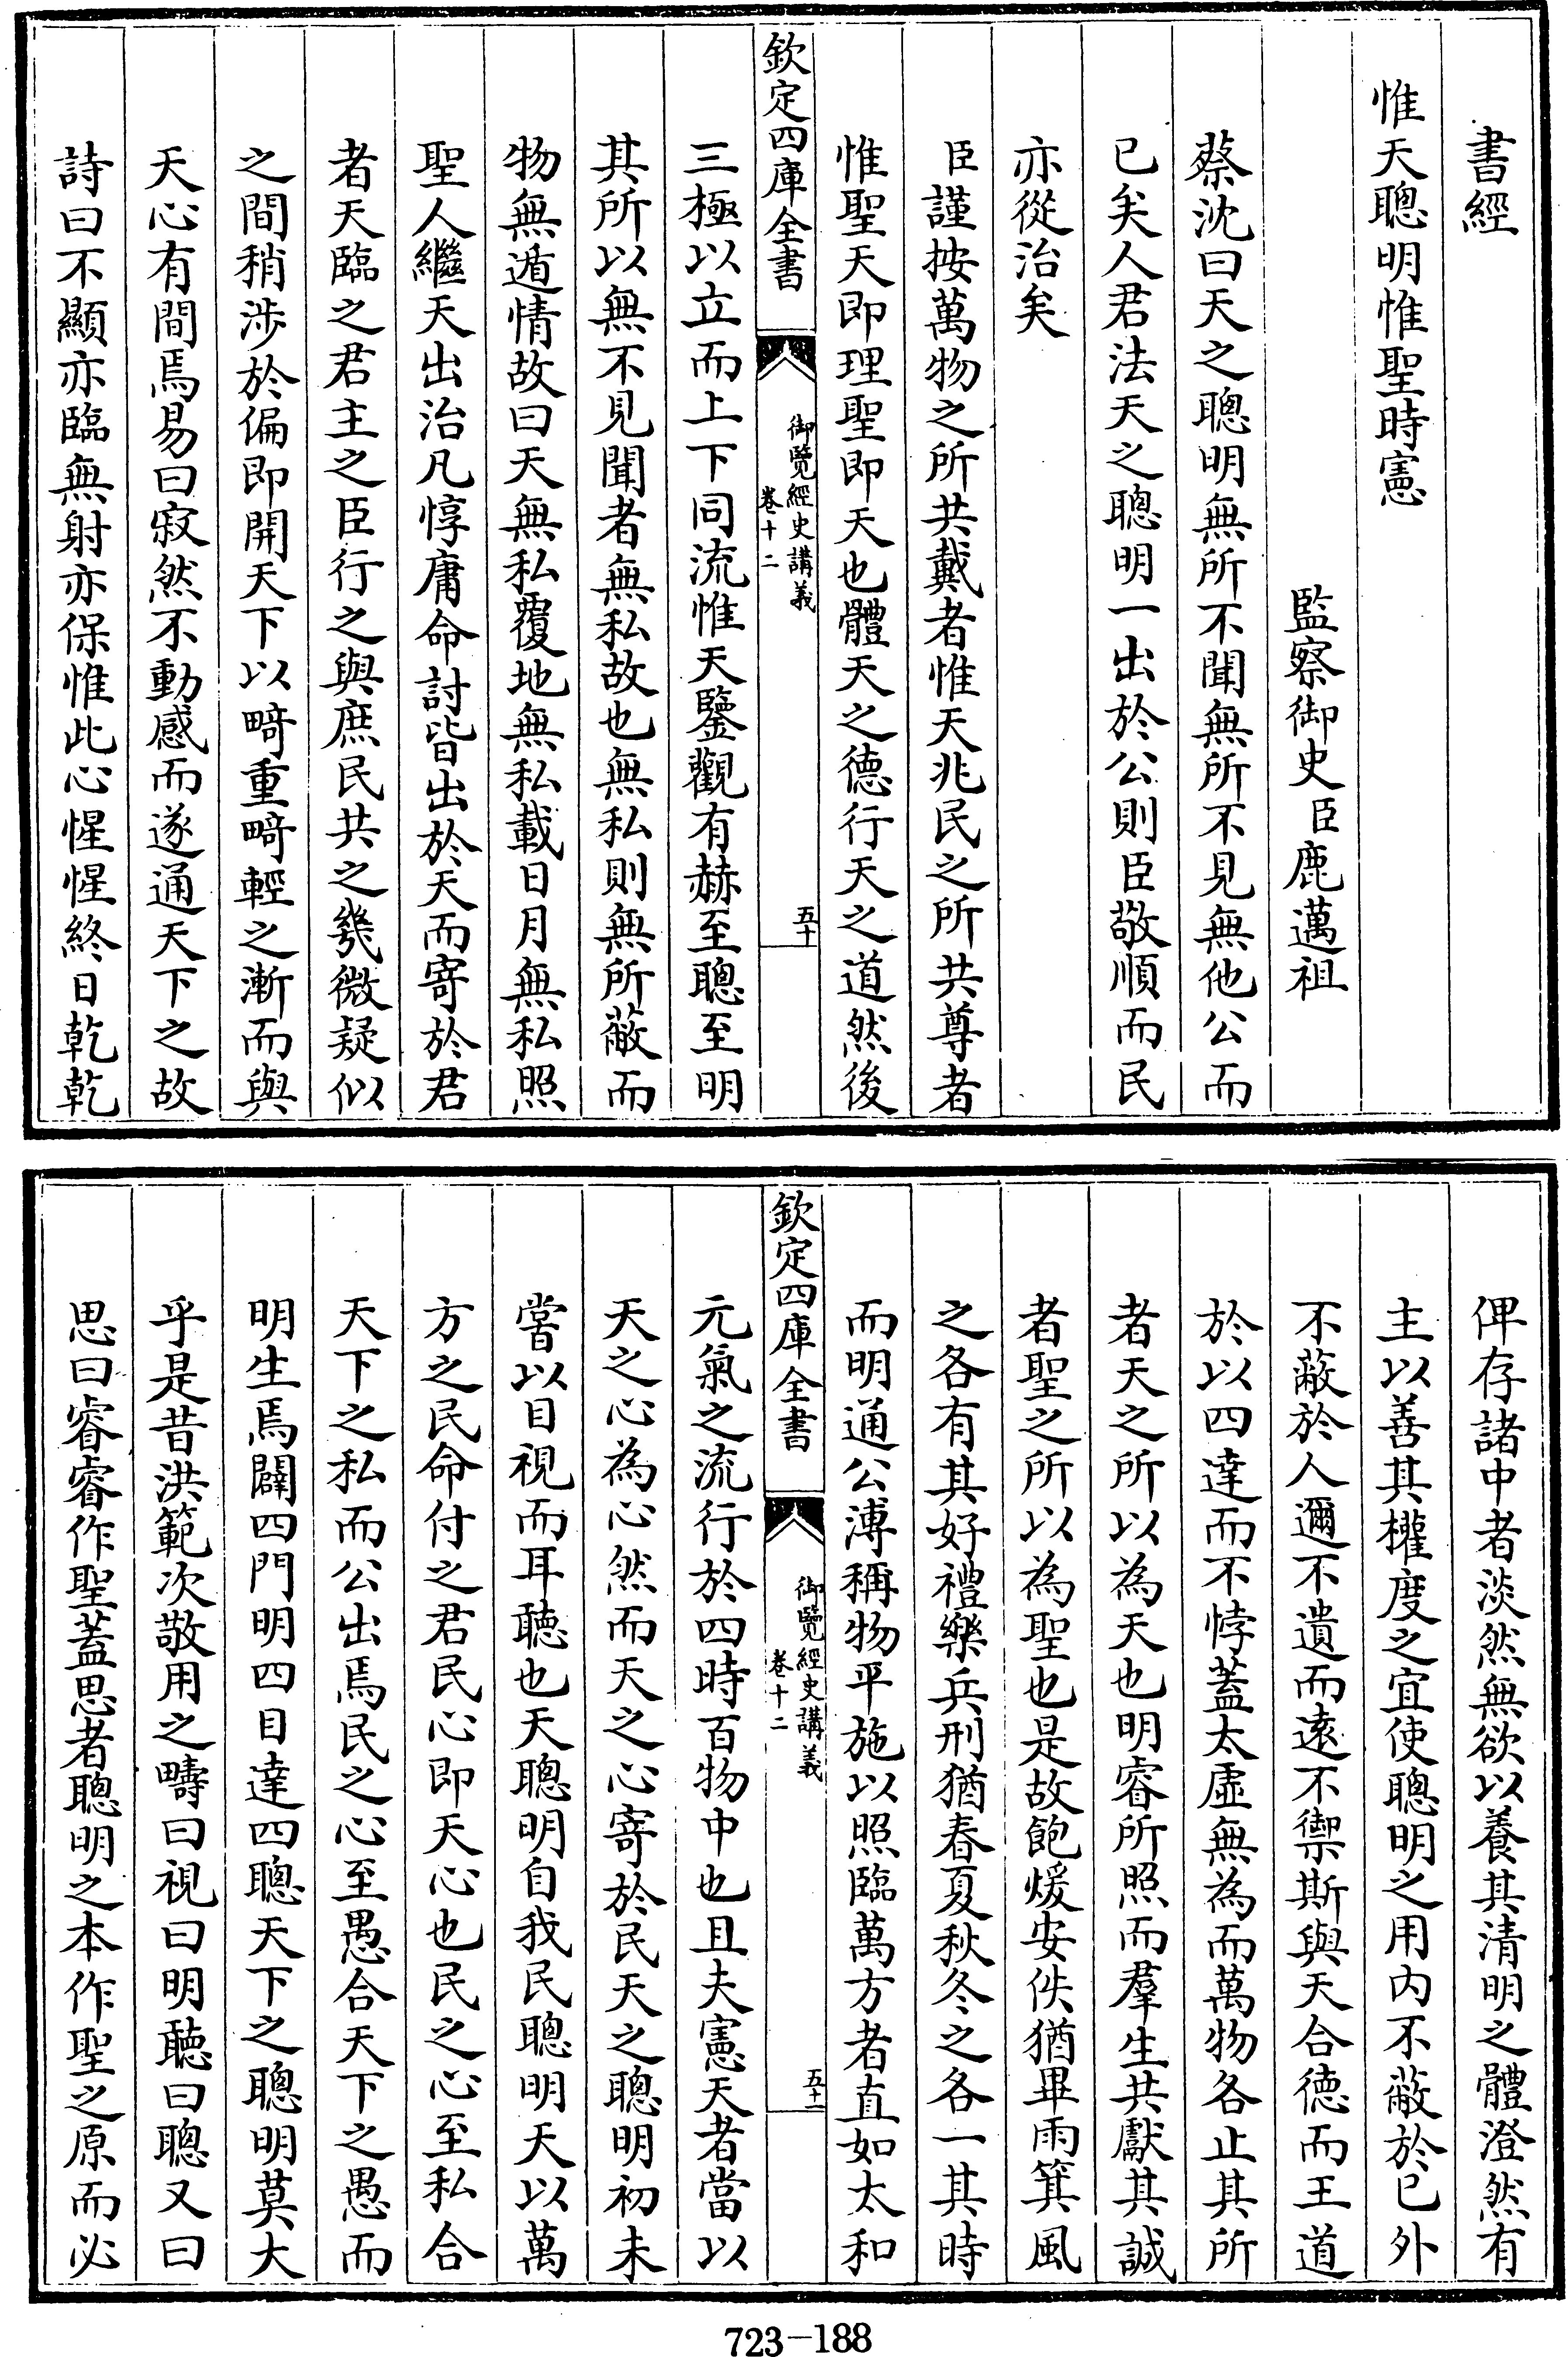 書經
惟天聰明惟聖時憲
監察御史臣鹿邁祖
蔡沈曰天之聰明無所不聞無所不見無他公而
已矣人君法天之聰明一出於公則臣敬順而民
亦從治矣
臣謹按萬物之所共戴者惟天兆民之所共尊者
惟聖天即理聖即天也體天之德行天之道然後
欽定四庫全書
御覽經史講義
卷十二
五十
三極以立而上下同流惟天鑒觀有赫至聰至明
其所以無不見聞者無私故也無私則無所蔽而
物無遁情故曰天無私覆地無私載日月無私照
聖人繼天出治凡惇庸命討皆出於天而寄於君
者天臨之君主之臣行之與庶民共之幾微疑似
之間稍涉於偏即開天下以畸重畸輕之漸而與
天心有間焉易曰寂然不動感而遂通天下之故
詩曰不顯亦臨無射亦保惟此心惺惺終日乾乾
俾存諸中者淡然無欲以養其清明之體澄然有
主以善其權度之宜使聰明之用内不蔽於已外
不蔽於人邇不遺而遠不禦斯與天合徳而王道
於以四達而不悖蓋太虛無為而萬物各止其所
者天之所以為天也明睿所照而羣生共獻其誠
者聖之所以為聖也是故飽煖安佚猶畢雨箕風
之各有其好禮樂兵刑猶春夏秋冬之各一其時
而明通公溥稱物平施以照臨萬方者直如太和
欽定四庫全書
御覽經史講義
卷十二
五十一
元氣之流行於四時百物中也且夫憲天者當以
天之心為心然而天之心寄於民天之聰明初未
嘗以目視而耳聽也天聰明自我民聰明天以萬
方之民命付之君民心即天心也民之心至私合
天下之私而公出焉民之心至愚合天下之愚而
明生焉闢四門明四目達四聰天下之聰明莫大
乎是昔洪範次敬用之疇曰視曰明聽曰聰又曰
思曰睿睿作聖蓋思者聰明之本作聖之原而必
723-188